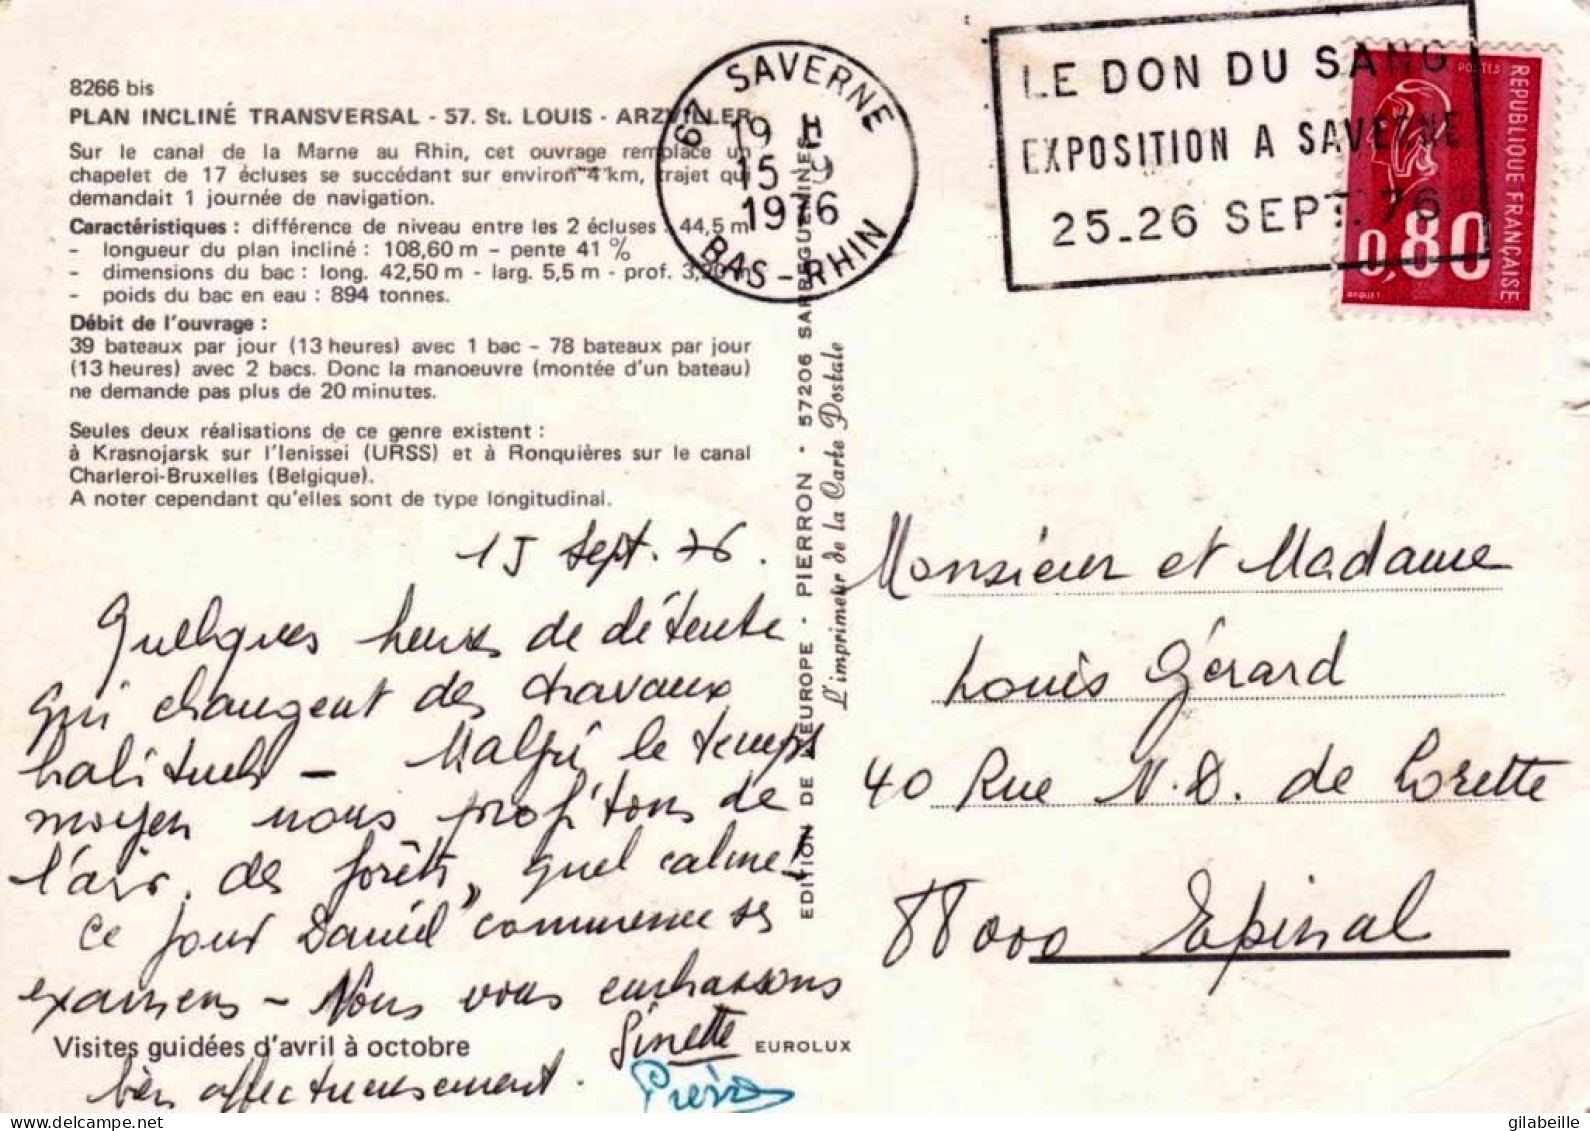 8266 bis
PLAN INCLINÉ TRANSVERSAL - 57. St. LOUIS - ARZVILLER
Sur le canal de la Marne au Rhin, cet ouvrage remplace un
chapelet de 17 écluses se succédant sur environ 4 km, trajet qui
demandait 1 journée de navigation.
Caractéristiques : différence de niveau entre les 2 écluses : 44,5 m
- longueur du plan incliné : 108,60 m - pente 41 %
- dimensions du bac : long. 42,50 m - larg. 5,5 m - prof. 3,20 m
- poids du bac en eau : 894 tonnes.
Débit de l'ouvrage :
39 bateaux par jour (13 heures) avec 1 bac - 78 bateaux par jour
(13 heures) avec 2 bacs. Donc la manoeuvre (montée d'un bateau)
ne demande pas plus de 20 minutes.
Seules deux réalisations de ce genre existent :
à Krasnojarsk sur l'Ienissei (URSS) et à Ronquières sur le canal
Charleroi-Bruxelles (Belgique).
A noter cependant qu'elles sont de type longitudinal.
15 Sept. 76.
Quelques heures de détente
qui changent des travaux
habituels - Malgré le temps
moyen nous profitons de
l'air, des forêts, quel calme!
Ce jour Daniel commence ses
examens - Nous vous embrassons
bien affectueusement.
Ginette
Pierre
Visites guidées d'avril à octobre
EUROLUX
EDITION DE L'EUROPE · PIERRON · 57206 SARREGUEMINES
L'imprimeur de la Carte Postale
67 SAVERNE
19 H
15-9
1976
BAS-RHIN
LE DON DU SANG
EXPOSITION A SAVERNE
25.26 SEPT. 76
POSTES
REPUBLIQUE FRANÇAISE
0,80
BEQUET
Monsieur et Madame
Louis Gérard
40 Rue N.D. de Lorette
88000 Epinal
gilabeille